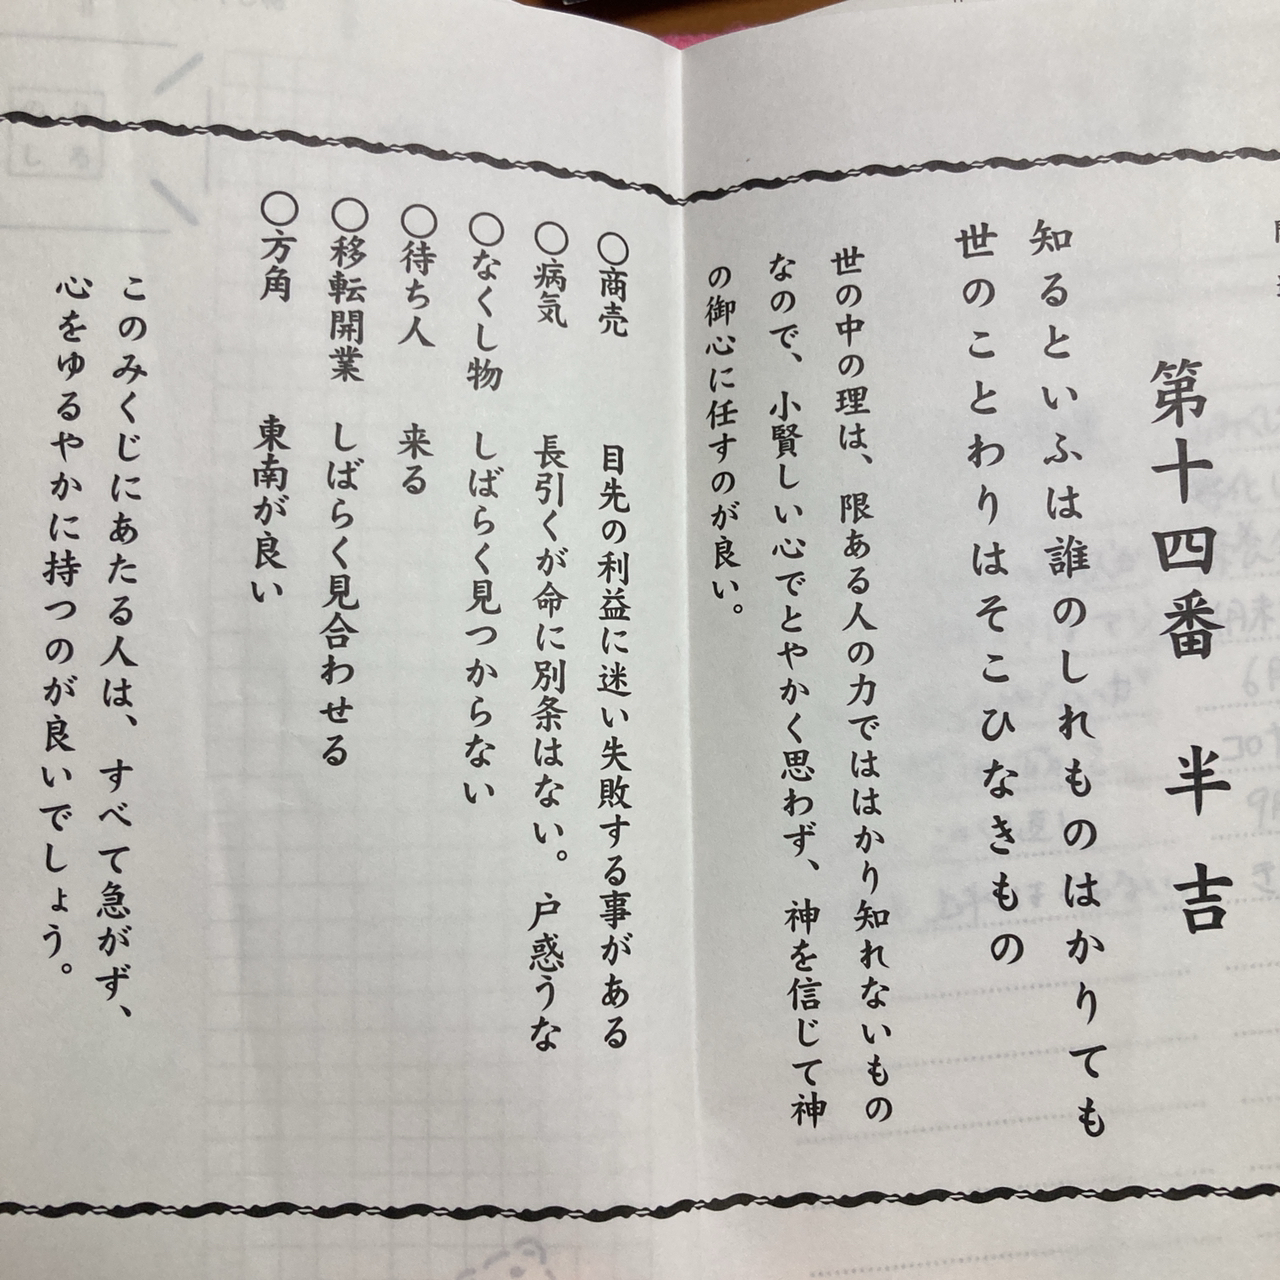 第十四番　半吉
知るといふは誰のしれものはかりても
世のことわりはそこひなきもの
世の中の理は、限ある人の力でははかり知れないもの
なので、小賢しい心でとやかく思わず、神を信じて神
の御心に任すのが良い。
〇商売　目先の利益に迷い失敗する事がある
〇病気　長引くが命に別条はない。戸惑うな
〇なくし物　しばらく見つからない
〇待ち人　来る
〇移転開業　しばらく見合わせる
〇方角　東南が良い
このみくじにあたる人は、すべて急がず、
心をゆるやかに持つのが良いでしょう。